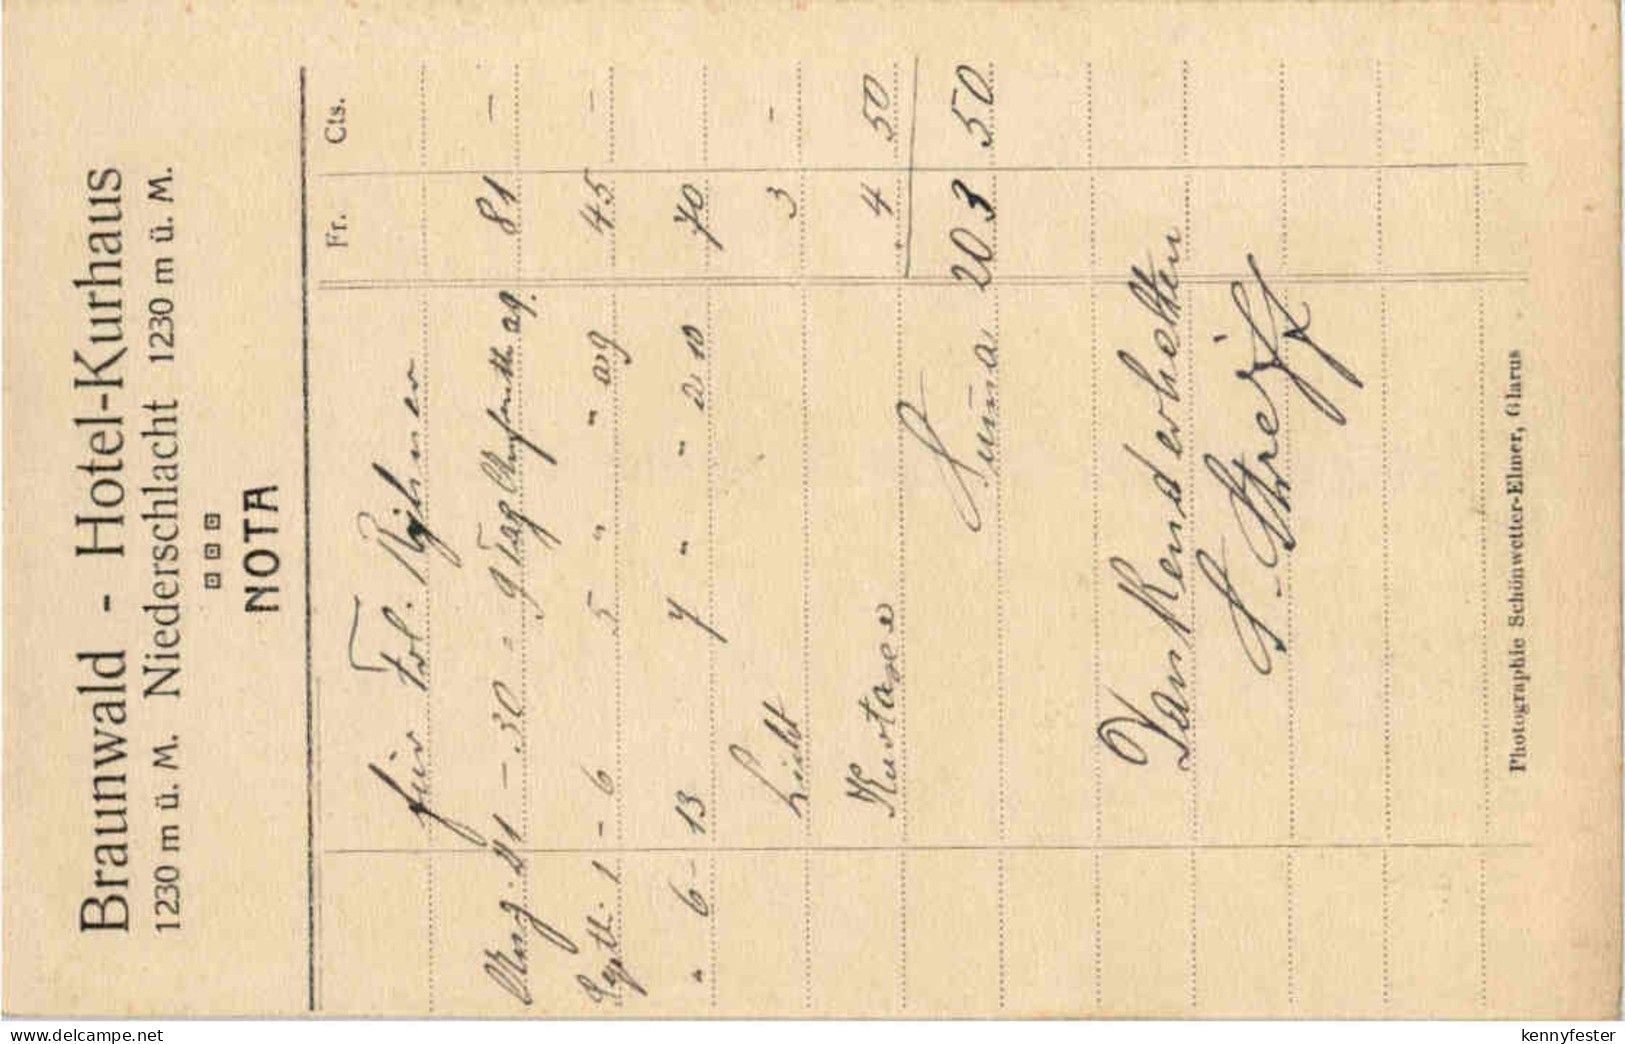 Braunwald - Hotel-Kurhaus
1230 m ü. M. Niederschlacht 1230 m ü. M.
NOTA
Fr. Cts.
für Frl.
Aug. 21 - 30 = 9 Tag ag. 81 -
Septb. 1 - 6 5 " " ag 45 -
" 6 - 13 7 " " à 10 70
Licht 3 -
Kurtaxe 4 50
Summa 203 50
Dankend erhalten
S. Streiff
Photographie Schönwetter-Elmer, Glarus
www.delcampe.net
kennyfester